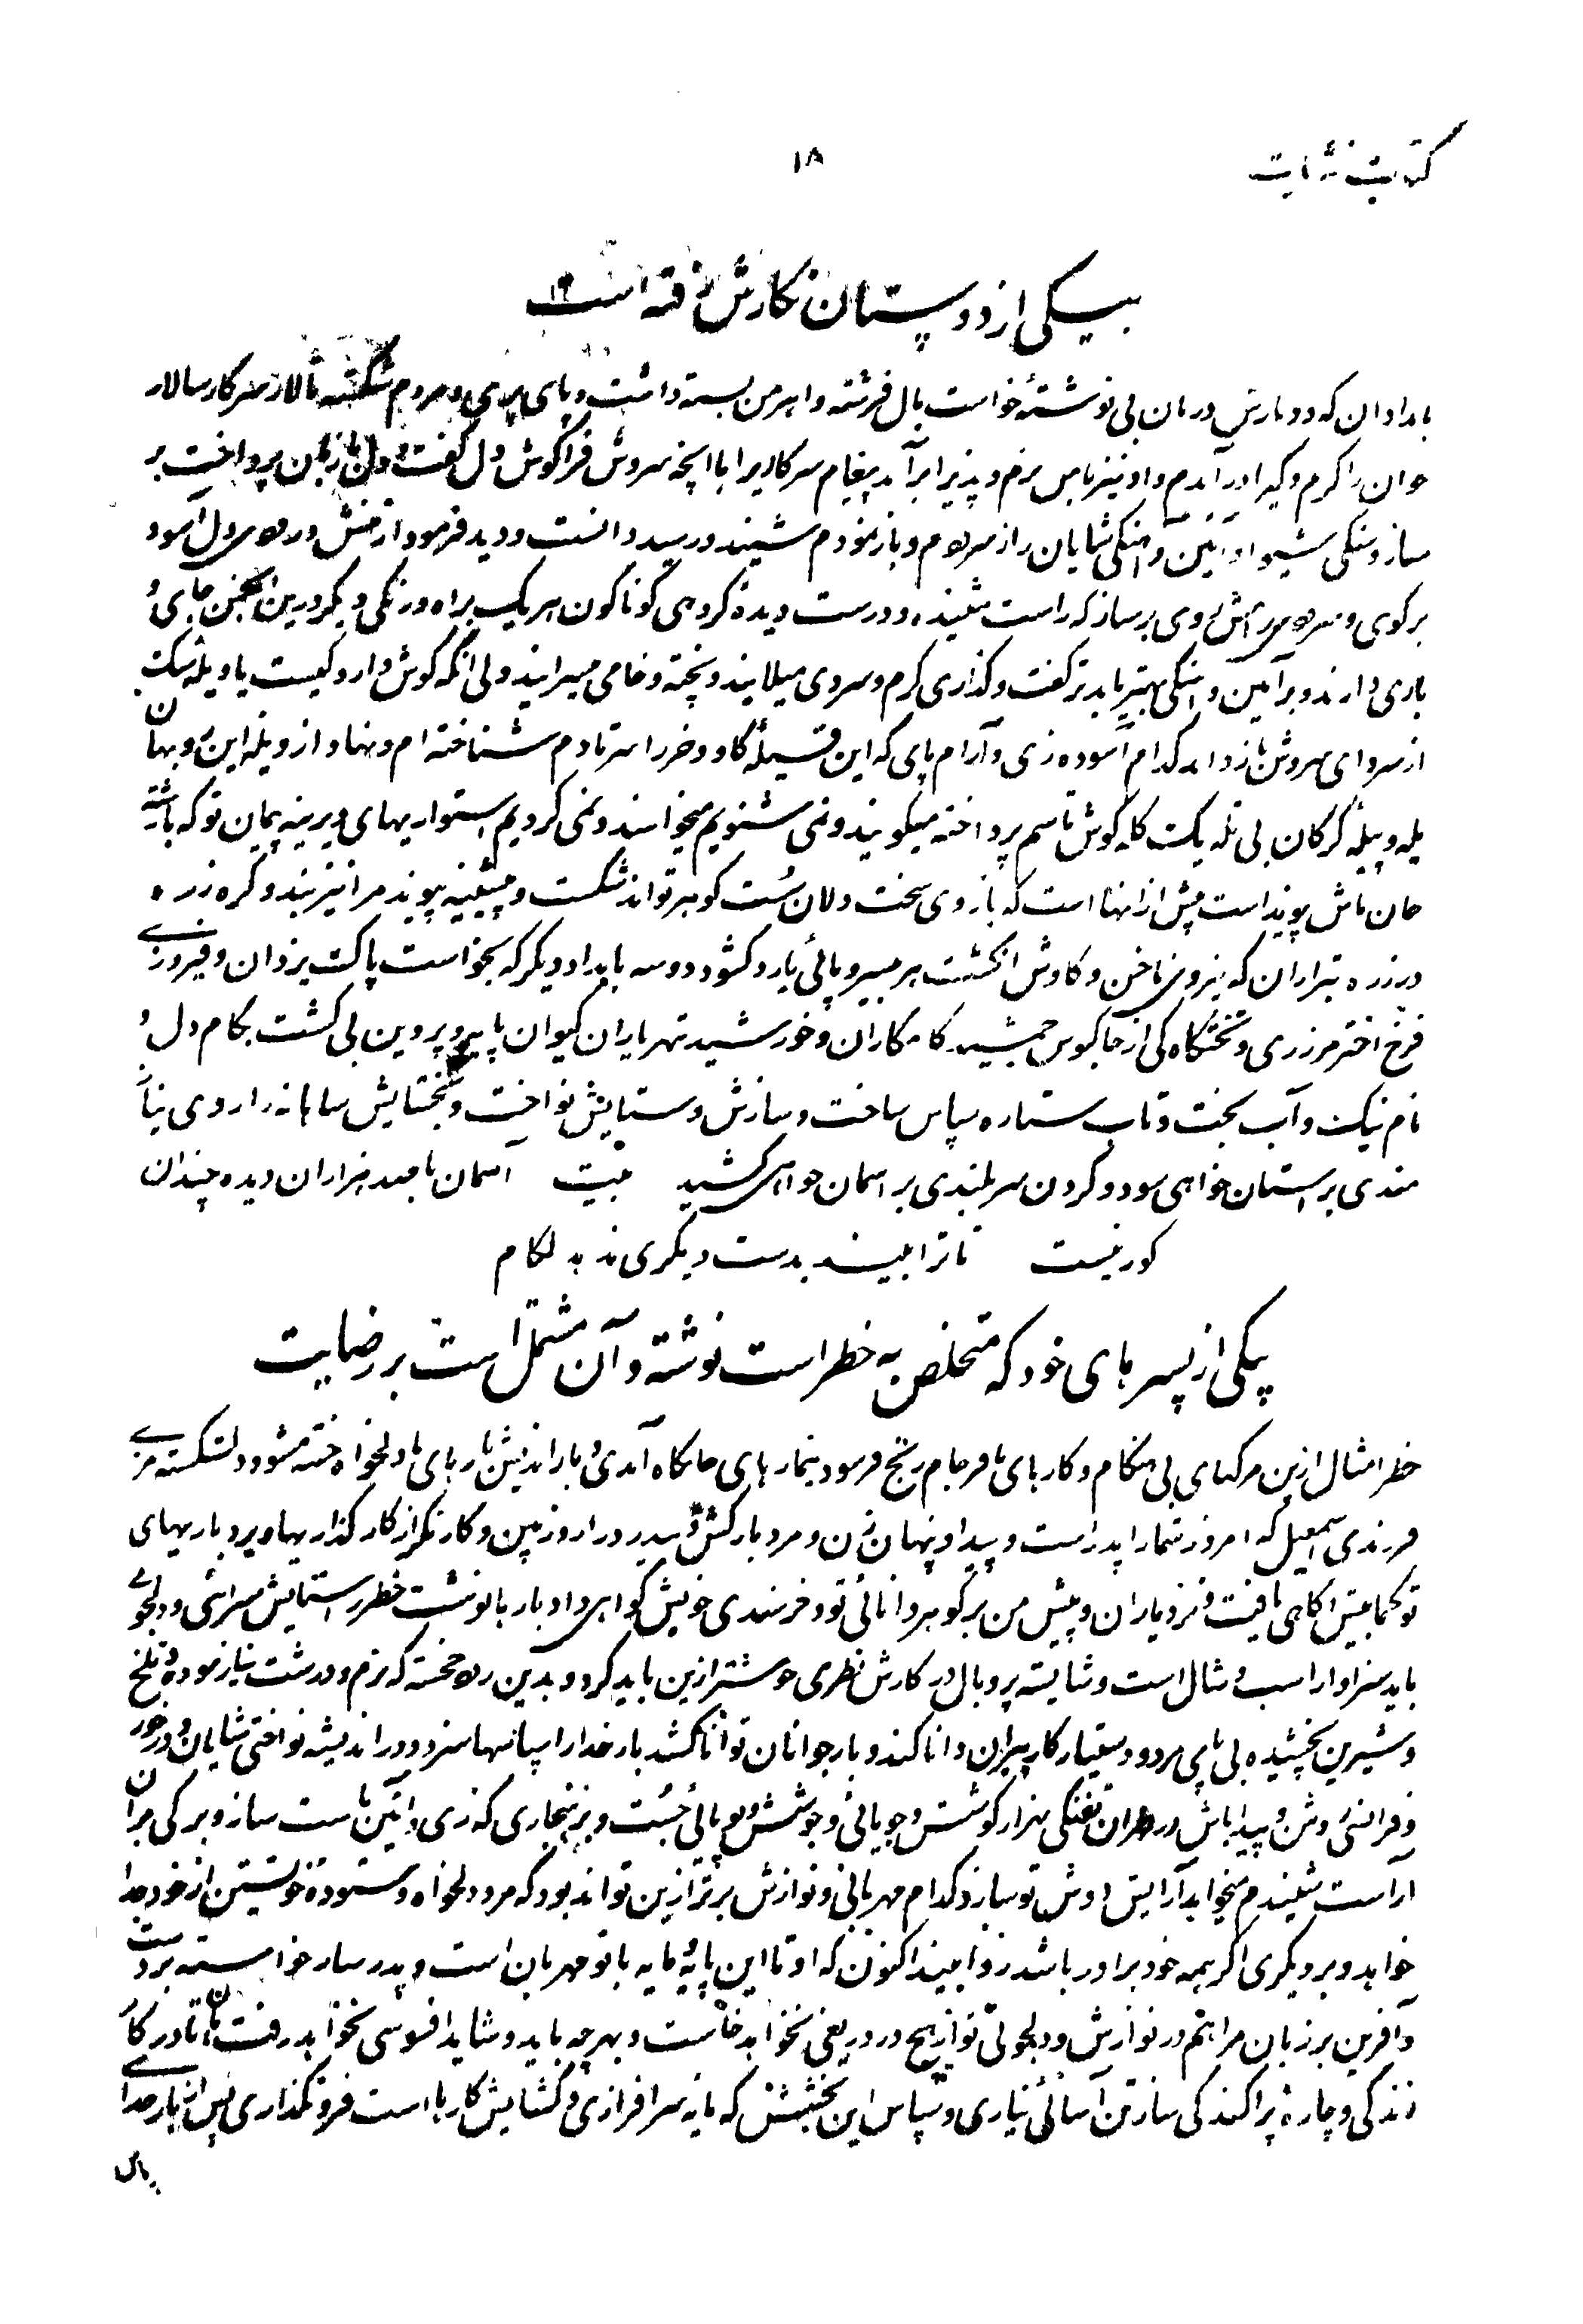 ۱۸
بیکی از دوستان نگارش رفته است
بامدادان که دوبارش دربان بی نوشته خواست بال فرشته و اهرمن بسته داشت و پای پری و مردم شکسته تالار سرکار سالار
خوان را گرم و گیرا درآمدم و او نیز با من نرم و پذیرا برآمد پیغام سرکاریرا با آنچه سروش فراگوش دل گفت و دل با زبان پرداخت بر
ساز و سنگی شیوا و آئین و آهنگی شایان راز سرودم و باز نمودم شنید و رسید دانست و دید فرمود از منش درودی دل آسود
برگوی و سرودی رامش روی برساز که راست شنیده و درست دیده گروهی گوناگون هر یک براه و رنگی دیگر درین انجمن جای و
باری دارند و بر آئین و آهنگی بهتر باید تر گفت و گذاری گرم و سردی میلایند و پخته و خامی میسرایند ولی آنکه گوش دارد کیست یا ویله سگ
از سرو ای سروش باز داند کدام آسوده زی و آرام پای که این قسیله گاو و خر را سرتا دم شناخته ام و نهاد از ویله این و بهان
یله و پیله گرگان بی تله یکت کله گوش تا سم پرداخته میگویند و نمی شنویم میخوانند و نمی گرویم استواریهای دیرینه پیمان تو که با رشته
جان ماش پیوند است بیش از آنها است که بازوی سخت دلان سست گوهر تواند شکست و پیشینه پیوند مرا نیز بند و گره زره
در زره تیزاران که بنیروی ناخن و کاوش انگشت هر بی سر و پائی یارد گشود دو سه بامداد دیگر که بخواست پاک یزدان و فیروزی
فرخ اختر مرز ری و تختگاه کی از جا کبوس جمشید کامکاران و خورشید شهریاران کیوان پایه و پروین پی گشت بکام دل و
نام نیک و آب بخت و تاب ستاره سپاس ساخت و سازش و ستایش نواخت و بخشایش سامانه را روی نیاز
مندی بر آستان خواهی سود و گردن سربلندی بر آسمان خواهی کشید بیت آسمان با صد هزاران دیده چندان
کور نیست تا ترا بیند بدست دیگری ندهد لگام
بیکی از پسرهای خود که متخلص به خطر است نوشته و آن مشتمل است بر رضایت
خطر امثال ازین مرگهای بی هنگام و کارهای نافرجام رنج فرسود تیمارهای جانکاه آمدی و بار اندیش بارهای نادلخواه خسته مشو و دلشکسته مزی
فرزندی اسمعیل که امروز شما را پدر است و پیدا و پنهان زن و مرد را بارکش و سپر دراز و زمین و کار نگر از کار گذاریها و بردباریهای
تو کما بیش آگاهی یافت و نزد یاران و پیش من بر گوهر دانائی تو و فرزندی خویش گواهی داد بارها نوشت خطر را ستایش سرائی و دلجوئی
باید سزاوار اسب و شال است و شایسته پر و بال در کارش نظری خوشتر ازین باید کرد و بدین ره خجسته که نرم و درشت نیازموده و تلخ
و شیرین نچشیده بی پای مرد و دستیار کار پیران دانا کند و بار جوانان توانا کشد بار خدا را سپاسها سزد و در اندیشه نواختی شایان و درخور
فرا تنی وش و پیدا باش در طهران تفنگی هزار کوشش و جویائی و جوشش و پویائی جست و بر هنجاری که زی و آئین ماست ساز و برگی بر آن
آراست شنیدم میخواهد آرایش دوش تو سازد کدام مهربانی و نوازش برتر ازین تواند بود که مرد دلخواه و ستوده خویشتن از خود جدا
خواهد و بر دیگری اگر همه خود برادر باشد روا بیند اکنون که او تا این پایه و مایه با تو مهربان است و پدرسار خواسته بر دست
و آفرین بر زبان مرا هم در نوازش و دلجوئی تو از هیچ در دریغی نخواهد خاست و بهرچه باید و شاید افسوسی نخواهد رفت هان تا در کار
زندگی و چاره پراکندگی ساز تن آسائی نیاری و سپاس این بخشش که مایه سرافرازی و گشایش کارها است فرو نگذاری پس از بار خدا